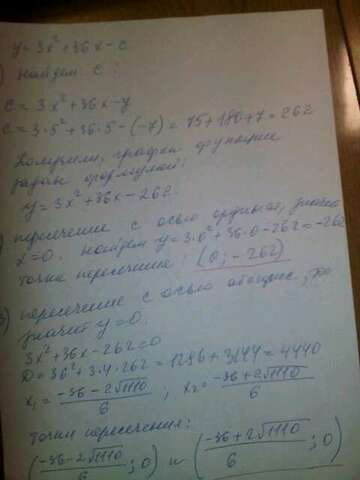 y=3x²+36x-c
) найдем c:
c=3x²+36x-y
c=3·5²+36·5-(-7)=75+180+7=262
Получили, график функции
задан формулой:
y=3x²+36x-262.
) пересечение с осью ординат, значит
x=0. найдем y=3·0²+36·0-262=-262
точка пересечения: (0;-262)
) пересечение с осью абсцисс,
значит y=0.
3x²+36x-262=0
D=36²+3·4·262=1296+3144=4440
x₁=(-36-2√1110)/6; x₂=(-36+2√1110)/6
точки пересечения:
((-36-2√1110)/6;0) и ((-36+2√1110)/6;0)